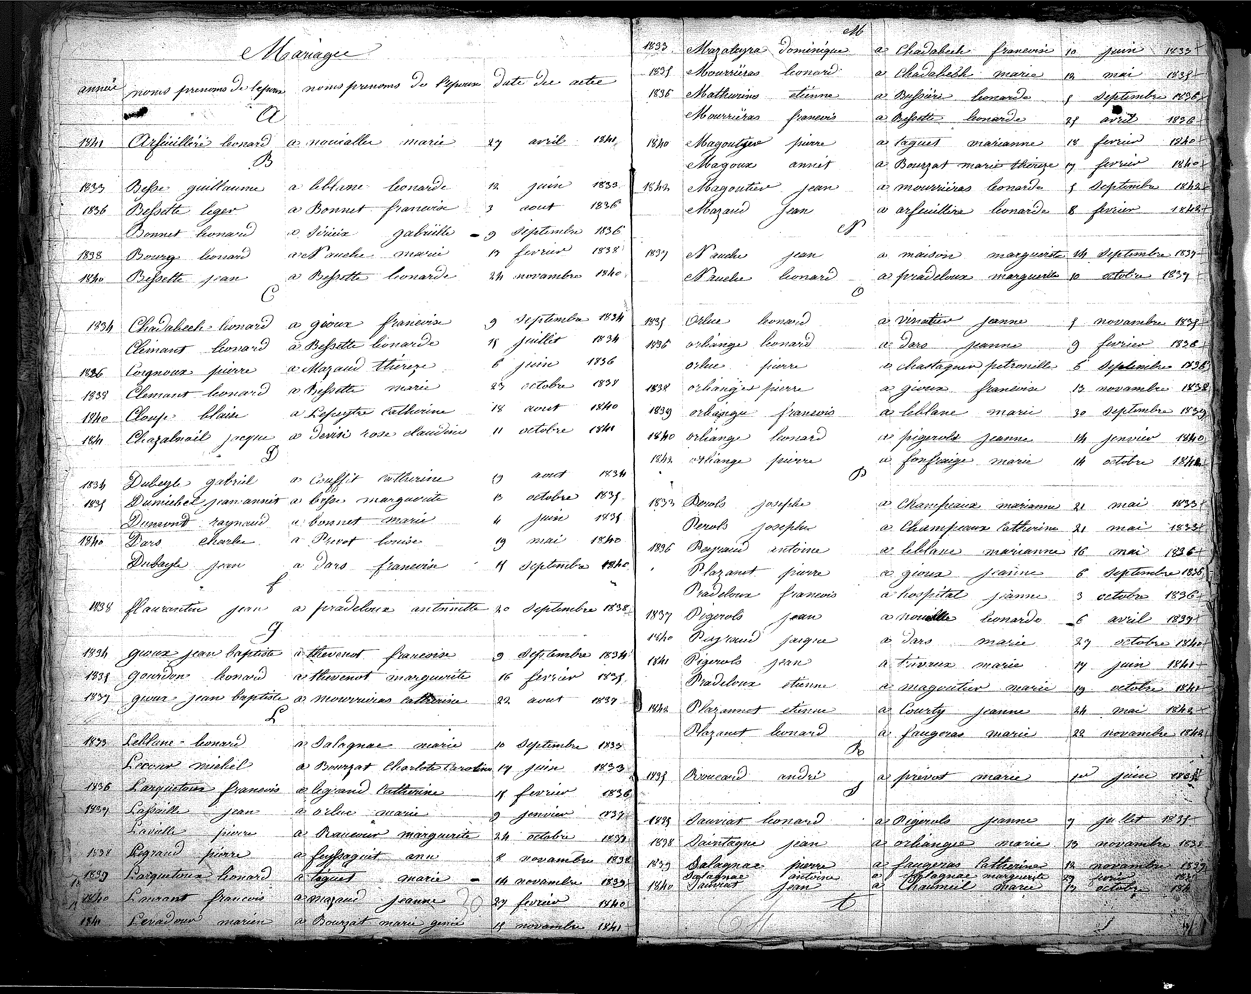 Mariages
année noms prenoms de l'epoux noms prenoms de l'epouse date des actes
A
1841 Arfeuillère leonard a nouaille marie 27 avril 1841
B
1833 Besse guillaume a leblanc leonarde 12 juin 1833
1836 Bessette leger a Bonnet francoise 3 aout 1836
Bonnet leonard a gabrielle 9 septembre 1836
1838 Bourg leonard a Nauche marie 13 fevrier 1838
1840 Bessette jean a Bessette leonarde 24 novembre 1840
C
1834 Chadabech leonard a gioux francoise 9 septembre 1834
Clemant leonard a Bessette leonarde 15 juillet 1834
1836 Coignoux pierre a Mazaud thérèze 6 juin 1836
1838 Clemant leonard a Bessette marie 23 octobre 1838
1840 Cloup blaise a catherine 18 aout 1840
1841 Chazalnoil jacque a Devise rose claudine 11 octobre 1841
D
1834 Dubayle gabriel a Couffit catherine 19 aout 1834
1835 Dumichel jean annet a besse marguerite 13 octobre 1835
Dumond raynaud a bonnet marie 4 juin 1835
1840 Dars charle a Prevot louise 19 mai 1840
Dubayle jean a Dars francoise 15 septembre 1840
f
1838 flaurantin jean a pradeloux antoinette 20 septembre 1838
g
1834 gioux jean baptiste a thevenot francoise 9 septembre 1834
1835 gourdon leonard a thevenot marguerite 16 fevrier 1835
1837 gioux jean baptiste a mourrieras catherine 22 aout 1837
L
1833 Leblanc leonard a Salagnac marie 10 septembre 1833
Lecour michel a Bourzat Charlote Caroline 17 juin 1833
1836 Larguetoux francois a legrand catherine 15 fevrier 1836
1837 Lassaille jean a orluc marie 9 janvier 1837
Laville pierre a marguerite 24 octobre 1837
1838 Legrand pierre a ann 8 novembre 1838
1839 Larguetoux leonard a tiguet marie 14 novembre 1839
1840 Lamant francois a mazaud jeanne 27 fevrier 1840
1841 Levadour marien a Bourzat marie genie 15 novembre 1841
30
M
1833 Mazateyra dominique a Chadabech francoise 10 juin 1833
1835 Mourriéras leonard a Chadabech marie 12 mai 1835
1836 Mathurins etienne a Bussiere leonarde 5 septembre 1836
Mourriéras francois a Bessette leonarde 25 avril 1836
1840 Magoutier pierre a taguet marianne 18 fevrier 1840
Magoux annet a Bourzat marie thereze 17 fevrier 1840
1842 Magoutier jean a mourriéras leonarde 5 septembre 1842
Mazaud jean a arfeuillere leonarde 8 fevrier 1842
N
1837 Nauche jean a maison marguerite 14 septembre 1837
Nauche leonard a pradeloux marguerite 10 octobre 1837
O
1835 Orluc leonard a vinatier jeanne 5 novembre 1835
1836 orliange leonard a dars jeanne 9 fevrier 1836
orluc pierre a chastagner petronille 6 septembre 1836
1838 orliange pierre a gioux francoise 13 novembre 1838
1839 orliange francois a leblanc marie 30 septembre 1839
1840 orliange leonard a pigerols jeanne 14 janvier 1840
1842 orliange pierre a fonfreige marie 14 octobre 1842
P
1833 Perols josephe a Champeaux marianne 21 mai 1833
Perols josephe a Champeaux catherine 21 mai 1833
1836 Peyraud antoine a leblanc marianne 16 mai 1836
Plazanet pierre a gioux jeanne 6 septembre 1836
Pradeloux francois a hospital jeanne 3 octobre 1836
1837 Pigerols jean a nouaille leonarde 6 avril 1837
1840 Peyraud jacque a dars marie 27 octobre 1840
1841 Pigerols jean a trivoux marie 17 juin 1841
Pradeloux etienne a magoutier marie 19 octobre 1841
1842 Plazannet etienne a Courty jeanne 24 mai 1842
Plazanet leonard a faugeras marie 22 novembre 1842
R
1835 Roucard andré a prevot marie 1er juin 1835
S
1835 Sauviat leonard a Pigerols jeanne 7 juillet 1835
1838 Saintagne jean a orliangue marie 13 novembre 1838
1839 Salagnac pierre a faugeras catherine 12 novembre 1839
Salagnac antoine a Salagnac marguerite 29
1840 Sauviat jean a Chaumeil marie 13 octobre 1840
t